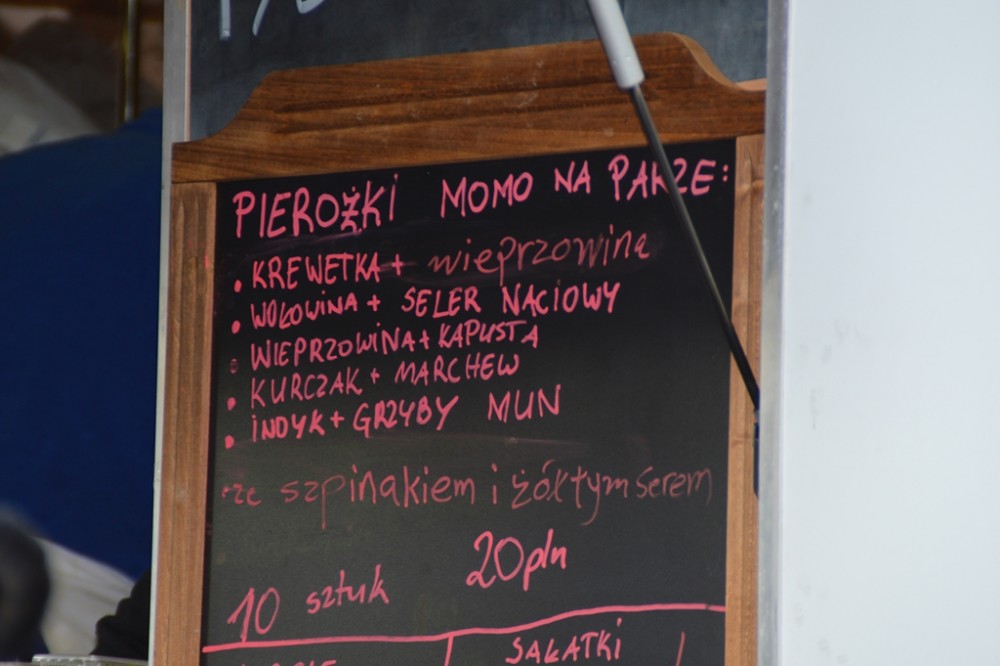 PIEROŻKI MOMO NA PARZE:
• KREWETKA + wieprzowina
• WOŁOWINA + SELER NACIOWY
• WIEPRZOWINA + KAPUSTA
• KURCZAK + MARCHEW
• INDYK + GRZYBY MUN
• ze szpinakiem i żółtym serem
10 sztuk 20pln
SAŁATKI